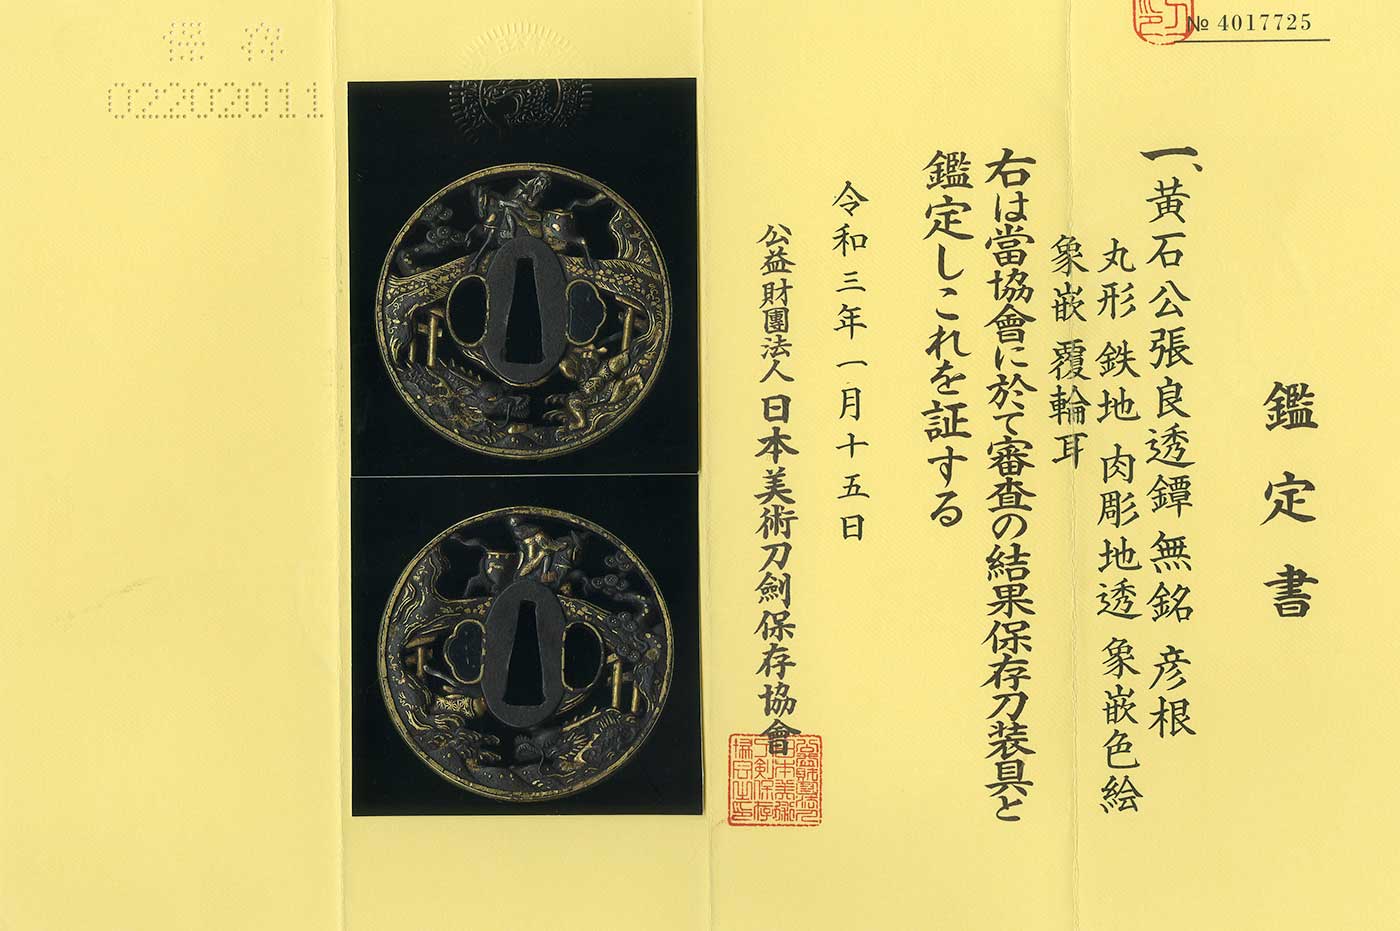 № 4017725
鑑定書
一、黄石公張良透鐔 無銘 彦根
丸形 鉄地 肉彫地透 象嵌色絵
象嵌 覆輪耳
右は當協會に於て審査の結果保存刀装具と
鑑定しこれを証する
令和三年一月十五日
公益財團法人 日本美術刀劍保存協會
保存
02202011